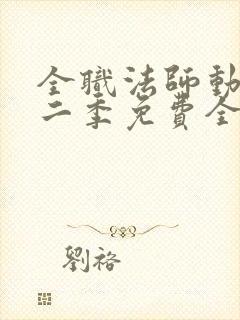 全職法師動
二季免費全
劉裕